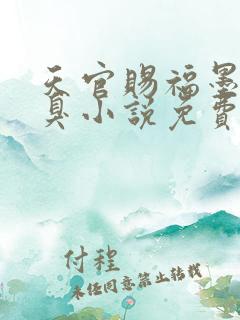 天官赐福墨
真小说免费
付程
未经同意禁止转载